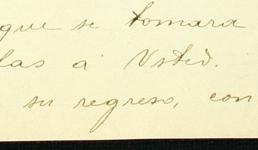 que se tomara
las á Usted.
su regreso, con